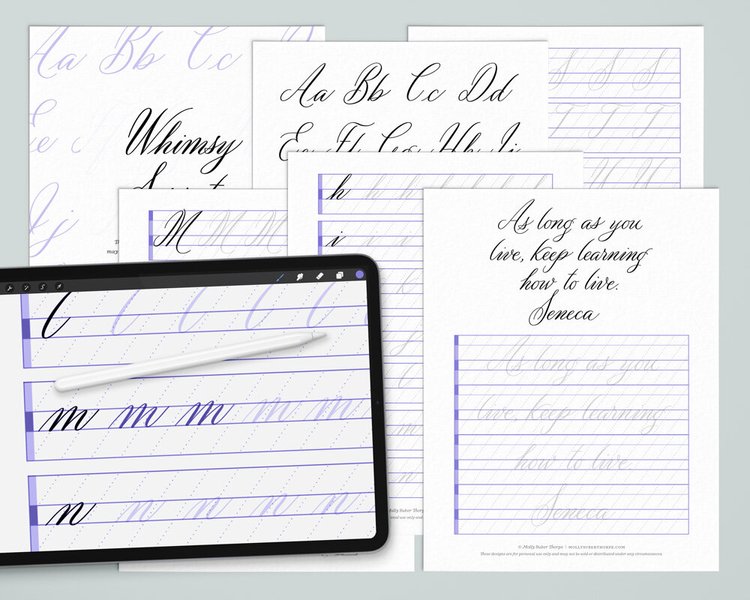 Aa Bb Cc
Whimsy
Aa Bb Cc Dd
Ee Ff Gg Hh Ii
S S S
T T T
U U U
Jj
M M M M
h h h h h
i
As long as you
live, keep learning
how to live.
Seneca
l l l l l
m m m m m
n n n n n
As long as you
live, keep learning
how to live.
Seneca
© Molly Suber Thorpe | MOLLYSUBERTHORPE.COM
These designs are for personal use only and may not be sold or distributed under any circumstances